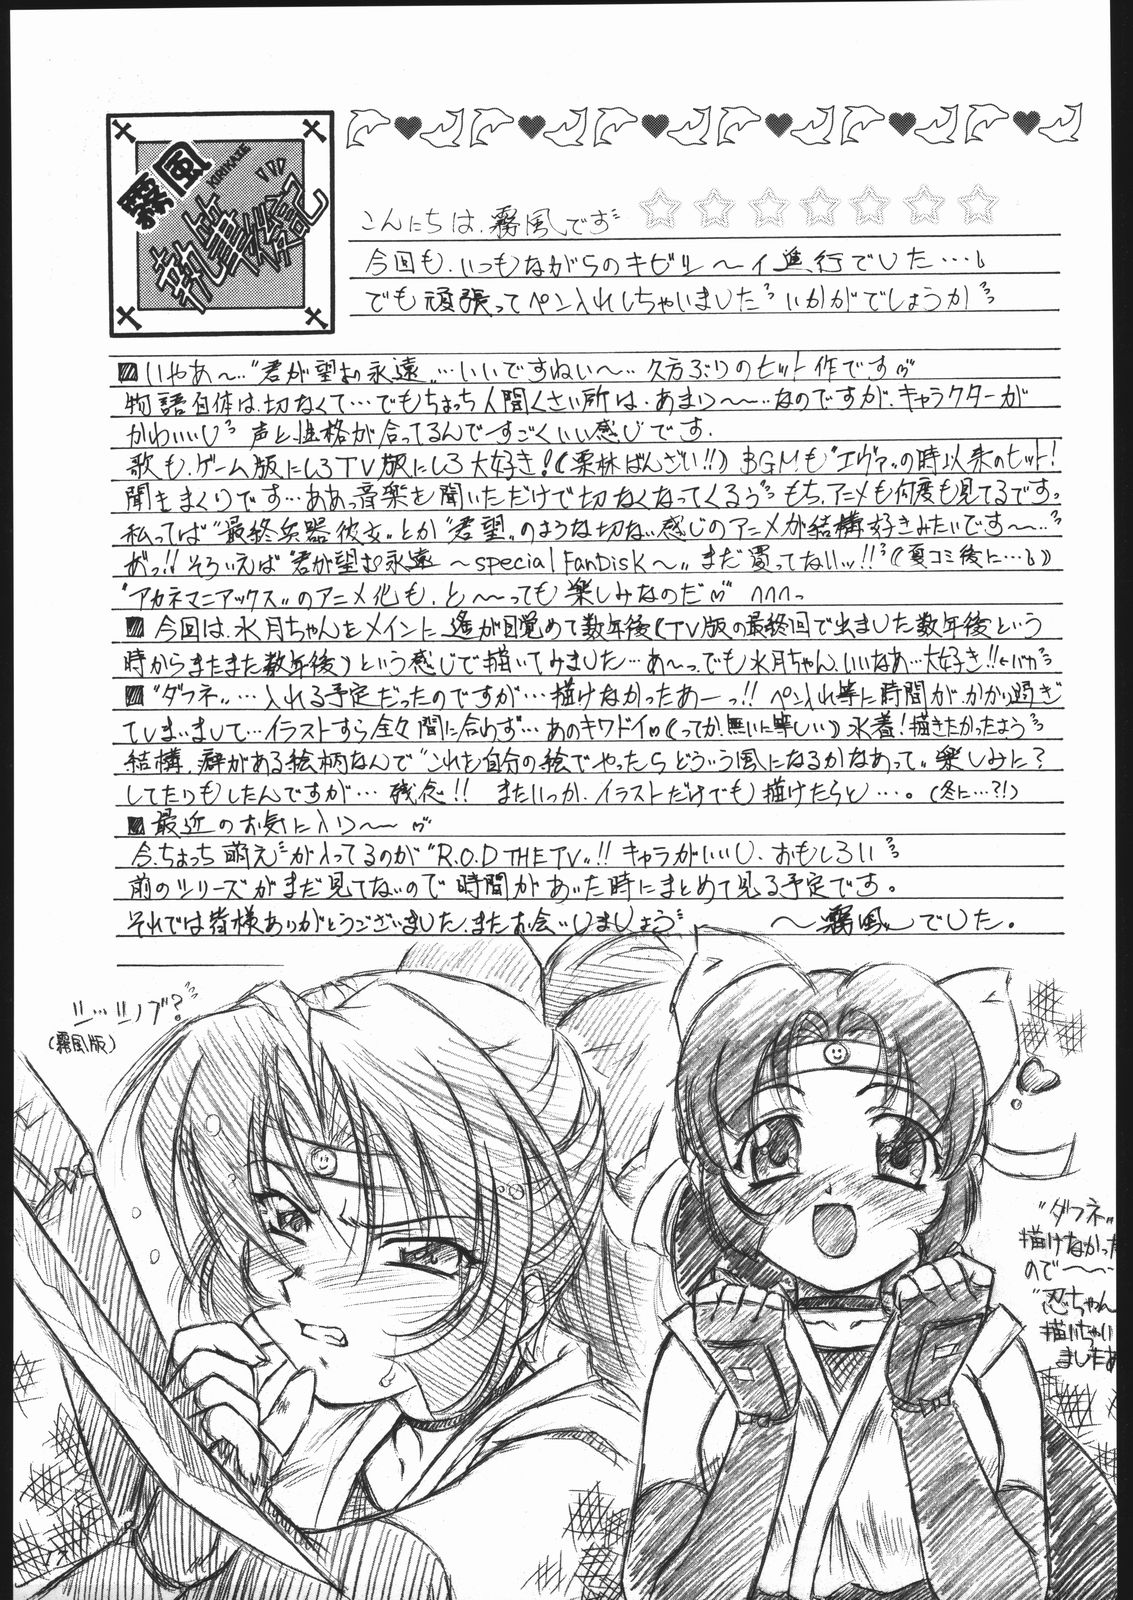 霧風
KIRIKAZE
執筆後記
こんにちは、霧風です
今回も、いつもながらのキビシ〜イ進行でした…
でも頑張ってペン入れしちゃいました いかがでしょうか
いやあ〜…"君が望む永遠"…いいですねぃ〜… 久方ぶりのヒット作です
物語自体は、切なくて…でもちょっち人間くさい所は、あまり〜…なのですが、キャラクターが
かわいいし 声と性格が合ってるんですごくいい感じです。
歌も、ゲーム版にしろTV版にしろ大好き!(栗林ばんざい!!) BGMも"エヴァ"の時以来のヒット!
聞きまくりです…ああっ音楽を聞いただけで切なくなってくるぅ もち、アニメも何度も見てるです。
私ってば"最終兵器彼女"とか"君望"のような切ない感じのアニメが結構好きみたいです〜…
あっ!! そういえば"君が望む永遠 〜special FanDisk〜"まだ買ってないッ!!(夏コミ後に…)
"アカネマニアックス"のアニメ化も、と〜っても楽しみなのだ
今回は、水月ちゃんをメインに 遙が目覚めて数年後(TV版の最終回で出ました数年後という
時からまたまた数年後)という感じで描いてみました…あ〜っ、でも水月ちゃん、いいなあ…大好き!!←バカ
"ダフネ"…入れる予定だったのですが…描けなかったあーっ!! ペン入れ等に時間が、かかり過ぎ
てしまいまして…イラストすら全々間に合わず…あのキワドイ(ってか、無いに等しい)水着!描きたかったよう
結構、癖がある絵柄なんで"これを自分の絵でやったらどういう風になるかなあって"楽しみに?
してたりもしたんですが… 残念!! またいつか、イラストだけでも描けたらと…。(冬に…?!)
最近のお気に入り〜
今、ちょっち萌えが入ってるのが"R.O.D THE TV"!! キャラがいいし、おもしろい
前のシリーズがまだ見てないので時間があいた時にまとめて見る予定です。
それでは皆様ありがとうございました、またお会いしましょう 〜霧風〜でした。
シ…シノブ?
(霧風版)
"ダフネ"
描けなかった
ので〜…
"忍ちゃん
描いちゃい
ましたあ